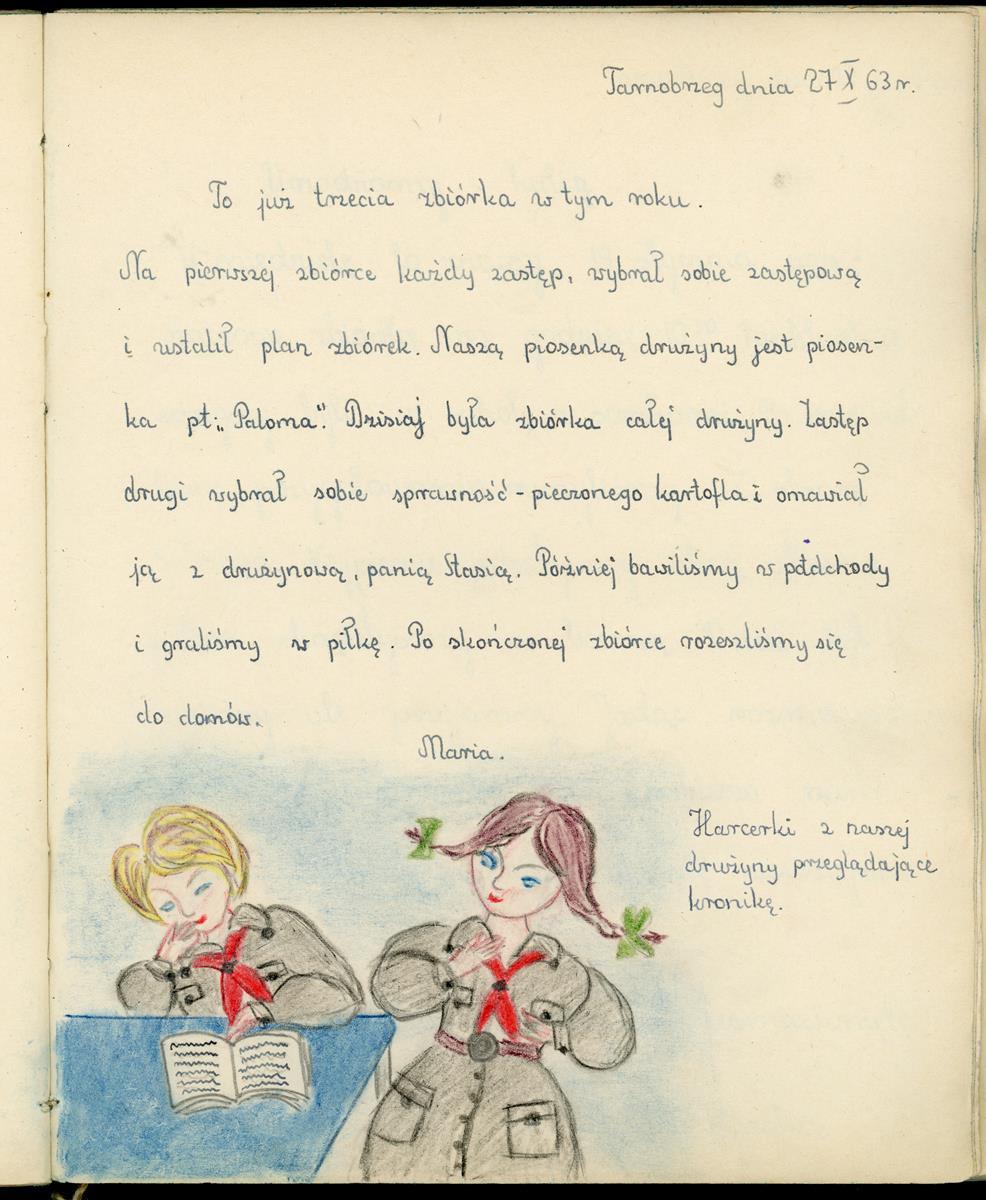 Tarnobrzeg dnia 27 X 63 r.
To już trzecia zbiórka w tym roku.
Na pierwszej zbiórce każdy zastęp, wybrał sobie zastępową
i ustalił plan zbiórek. Naszą piosenką drużyny jest piosen-
ka pt: „Paloma". Dzisiaj była zbiórka całej drużyny. Zastęp
drugi wybrał sobie sprawność - pieczonego kartofla i omawiał
ją z drużynową, panią Stasią. Później bawiliśmy w podchody
i graliśmy w piłkę. Po skończonej zbiórce rozeszliśmy się
do domów.
Maria.
Harcerki z naszej
drużyny przeglądające
kronikę.